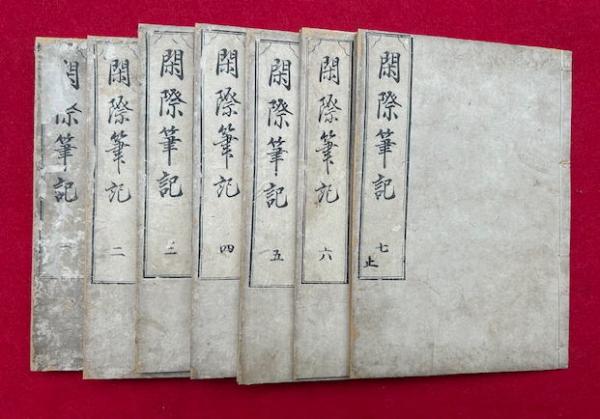 閑際筆記 一
閑際筆記 二
閑際筆記 三
閑際筆記 四
閑際筆記 五
閑際筆記 六
閑際筆記 七止